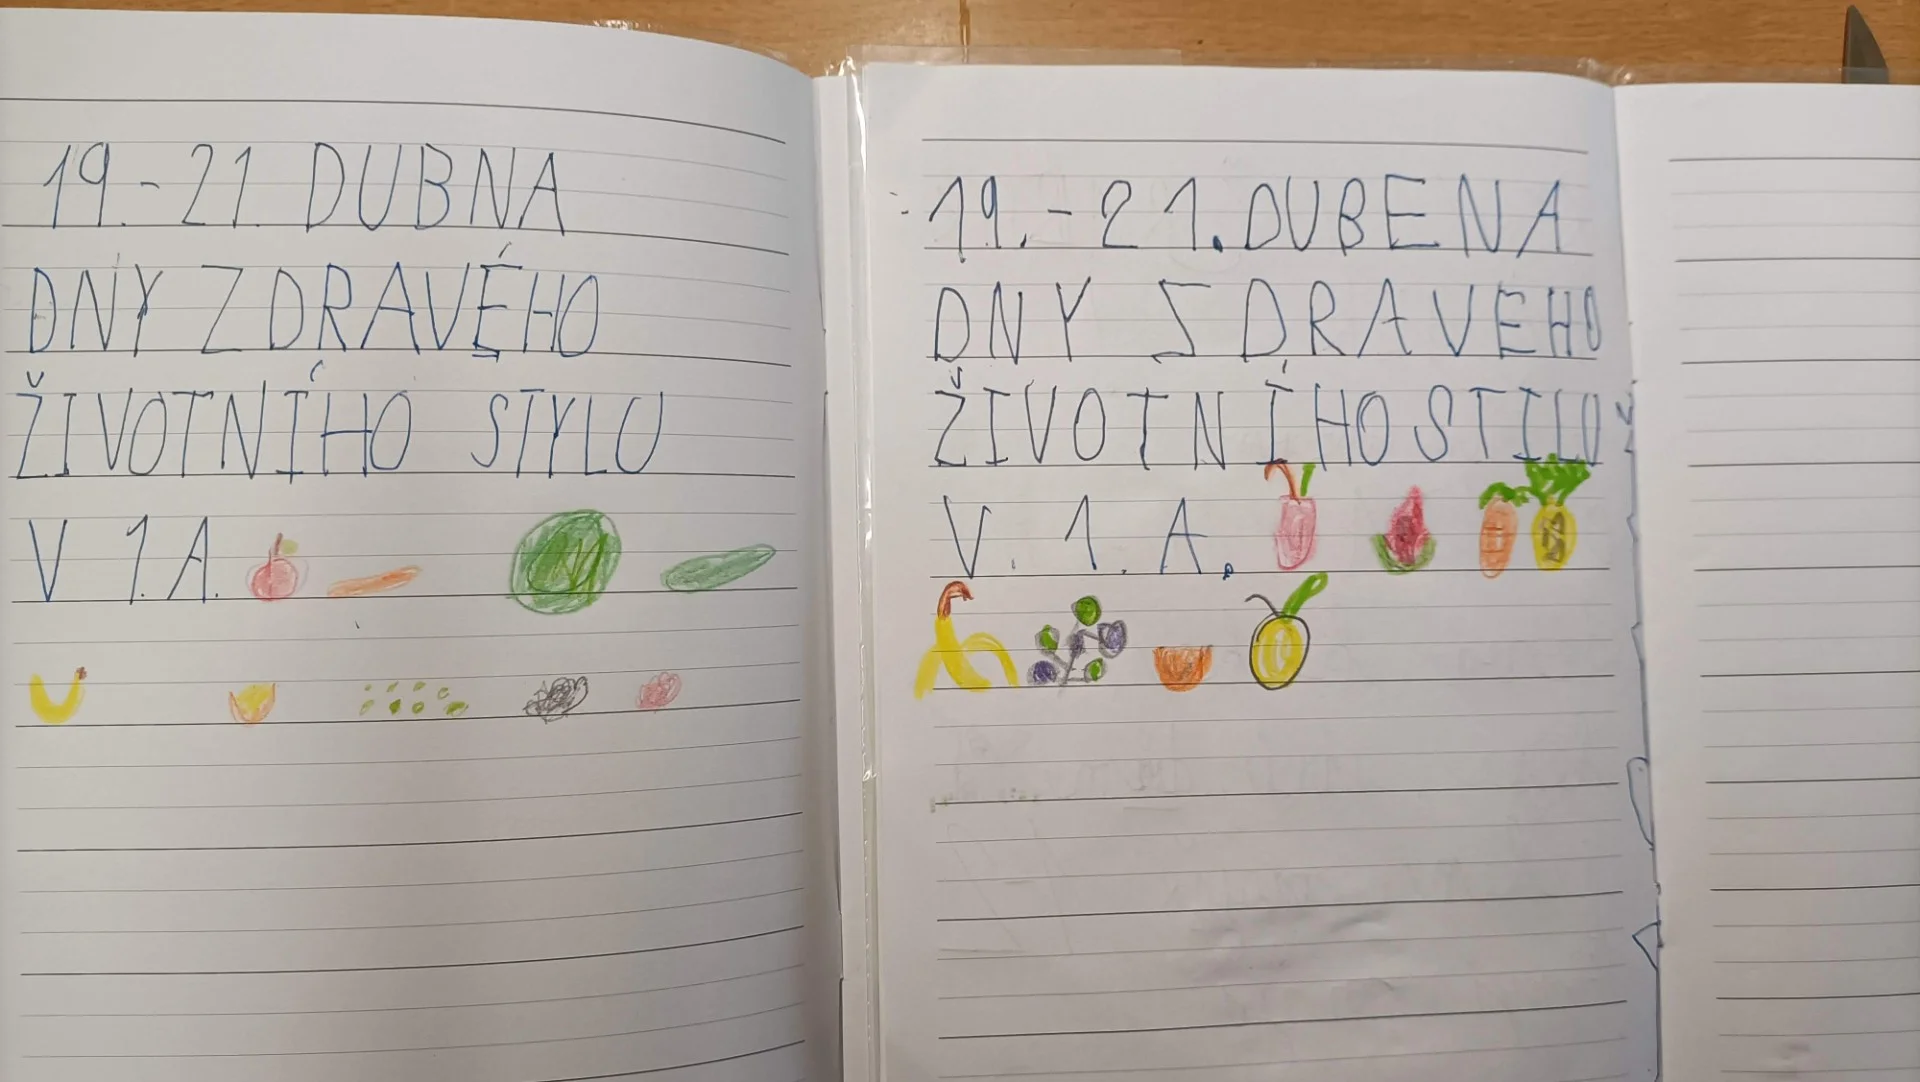 19.-21. DUBNA
DNY ZDRAVÉHO
ŽIVOTNÍHO STYLU
V 1.A.
19.-21. DUBENA
DNY SDRAVEHO
ŽIVOTNÍHO STILU
V. 1. A.